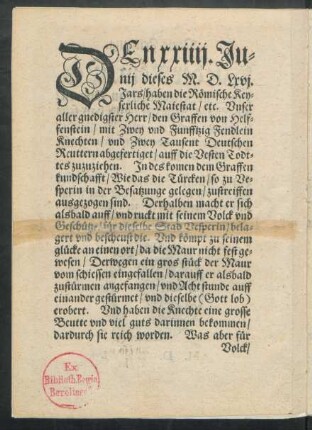 DEn xxiiij. Ju-
nij dieses M. D. Lxvj.
Jars/haben die Römische Key-
serliche Maiestat/ etc. Vnser
aller gnedigster Herr/ den Graffen von Helf-
fenstein/ mit Zwey vnd Funfftzig Fendlein
Knechten/ vnd Zwey Tausent Deutschen
Reuttern abgefertiget/ auff die Vesten Todt-
tes zuzuziehen. In des komen dem Graffen
kundschafft/ Wie das die Türcken/ so zu Ve-
sperin in der Besatzunge gelegen/ zustreiffen
ausgezogen sind. Derhalben macht er sich
alsbald auff/ vnd ruckt mit seinem Volck vnd
Geschütz/ für dieselbe Stad Vesperin/ bela-
gert vnd bescheust die. Vnd kömpt zu seinem
glücke an einen ort/ da die Maur nicht fest ge-
wesen/ Derwegen ein gros stück der Maur
vom schiessen eingefallen/ darauff er alsbald
zustürmen angefangen/ vnd Acht stunde auff
einander gestürmet/ vnd dieselbe (Gott lob)
erobert. Vnd haben die Knechte eine grosse
Beutte vnd viel guts darinnen bekommen/
dardurch sie reich worden. Was aber für
Volck/
Ex
Biblioth. Regia
Berolinensi